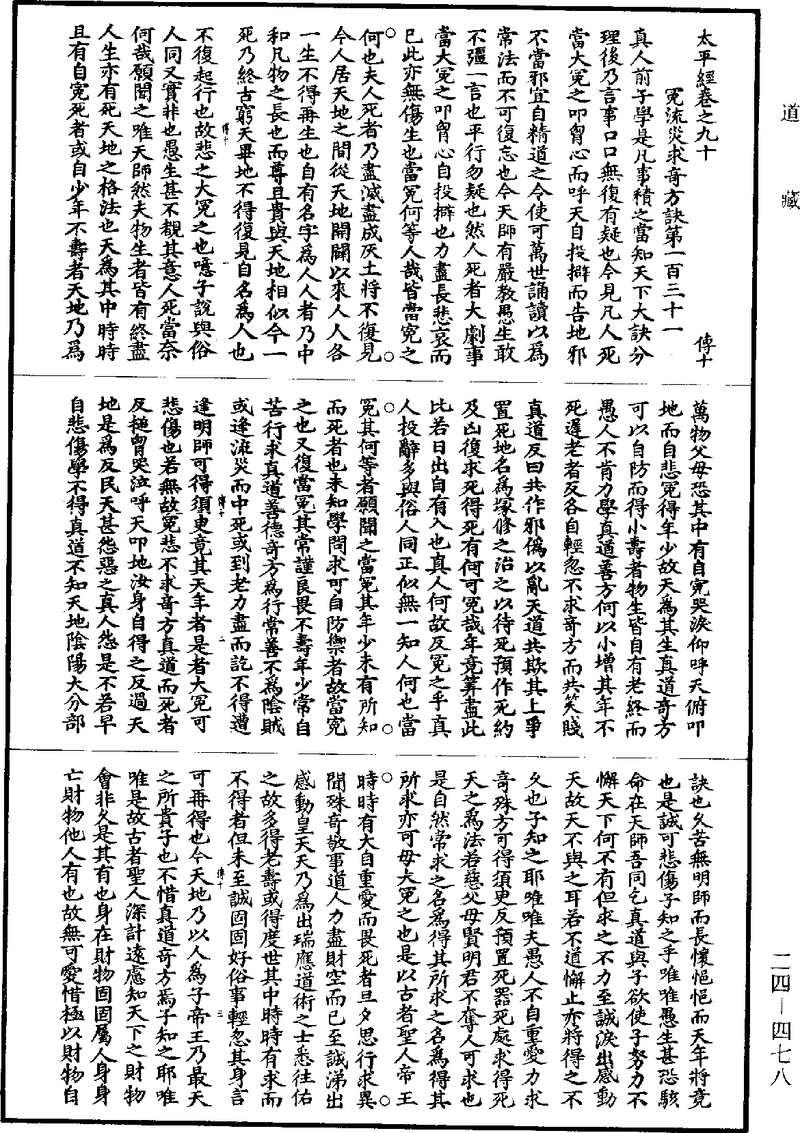 道藏
太平經卷之九十　傳十
冤流災求奇方訣第一百三十一
真人前子學是凡事積之當知天下大訣分
理後乃言事口口無復有疑也今見凡人死
當大冤之叩胷心而呼天自投擗而告地邪
不當邪宜自精道之今使可萬世誦讀以為
常法而不可復忘也今天師有嚴教愚生敢
不彊一言也平行勿疑也然人死者大劇事
當大冤之叩胷心自投擗也力盡長悲哀而
已此亦無傷生也當冤何等人哉皆當冤之
何也夫人死者乃盡滅盡成灰土將不復見
今人居天地之間從天地開闢以來人人各
一生不得再生也自有名字為人人者乃中
和凡物之長也而尊且貴與天地相似今一
死乃終古窮天畢地不得復見自名為人也
不復起行也故悲之大冤之也噫子說與俗
人同又實非也愚生甚不覩其意人死當奈
何哉願聞之唯天師然夫物生者皆有終盡
人生亦有死天地之格法也天為其中時時
且有自冤死者或自少年不壽者天地乃為
萬物父母恐其中有自冤哭淚仰呼天俯叩
地而自悲冤得年少故天為其生真道奇方
可以自防而得小壽者物生皆自有老終而
愚人不肯力學真道善方何以小增其年不
死遲老者反各自輕忽不求奇方而共笑賤
真道反曰共作邪偽以亂天道共欺其上爭
置死地名為塚修之治之以待死預作死約
及凶復求死得死有何可冤哉年竟筭盡此
比若日出自有入也真人何故反冤之乎真
人投辭多與俗人同正似無一知人何也當
冤其何等者願聞之當冤其年少未有所知
而死者也未知學問求可自防禦者故當冤
之也又復當冤其常謹良畏不壽年少常自
苦行求真道善德奇方為行常善不為陰賊
或逢流災而中死或到老力盡而訖不得遭
逢明師可得須臾竟其天年者是者大冤可
悲傷也若無故冤悲不求奇方真道而死者
反搥胷哭泣呼天叩地汝身自得之反過天
地是為反民天甚怨惡之真人怨是不若早
自悲傷學不得真道不知天地陰陽大分部
訣也久苦無明師而長懷悒悒而天年將竟
也是誠可悲傷子知之乎唯唯愚生甚恐駭
命在天師吾同乞真道與子欲使子努力不
懈天下何不有但求之不力至誠淚出感動
天故天不與之耳若不道懈止亦將得之不
久也子知之耶唯唯夫愚人不自重愛力求
奇殊方可得須臾反預置死器死處求得死
天之為法若慈父母賢明君不奪人可求也
是自然常求之名為得其所求之名為得其
所求亦可毋大冤之也是以古者聖人帝王
時時有大自重愛而畏死者旦夕思行求異
聞殊奇敬事道人力盡財空而已至誠涕出
感動皇天天乃為出瑞應道術之士悉往佑
之故多得老壽或得度世其中時時有求而
不得者但未至誠固固好俗事輕忽其身言
可再得也今天地乃以人為子帝王乃最天
之所貴子也不惜真道奇方焉子知之耶唯
唯是故古者聖人深計遠慮知天下之財物
會非久是其有也身在財物固固屬人身身
亡財物他人有也故無可愛惜極以財物自
傳十　一
傳十　二
傳十　三
二四－四七八